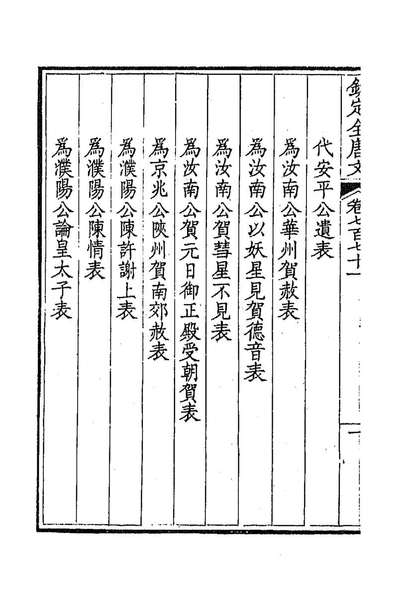 欽定全唐文 卷七百七十一 一
代安平公遺表
爲汝南公華州賀赦表
爲汝南公以妖星見賀德音表
爲汝南公賀彗星不見表
爲汝南公賀元日御正殿受朝賀表
爲京兆公陜州賀南郊赦表
爲濮陽公陳許謝上表
爲濮陽公陳情表
爲濮陽公論皇太子表